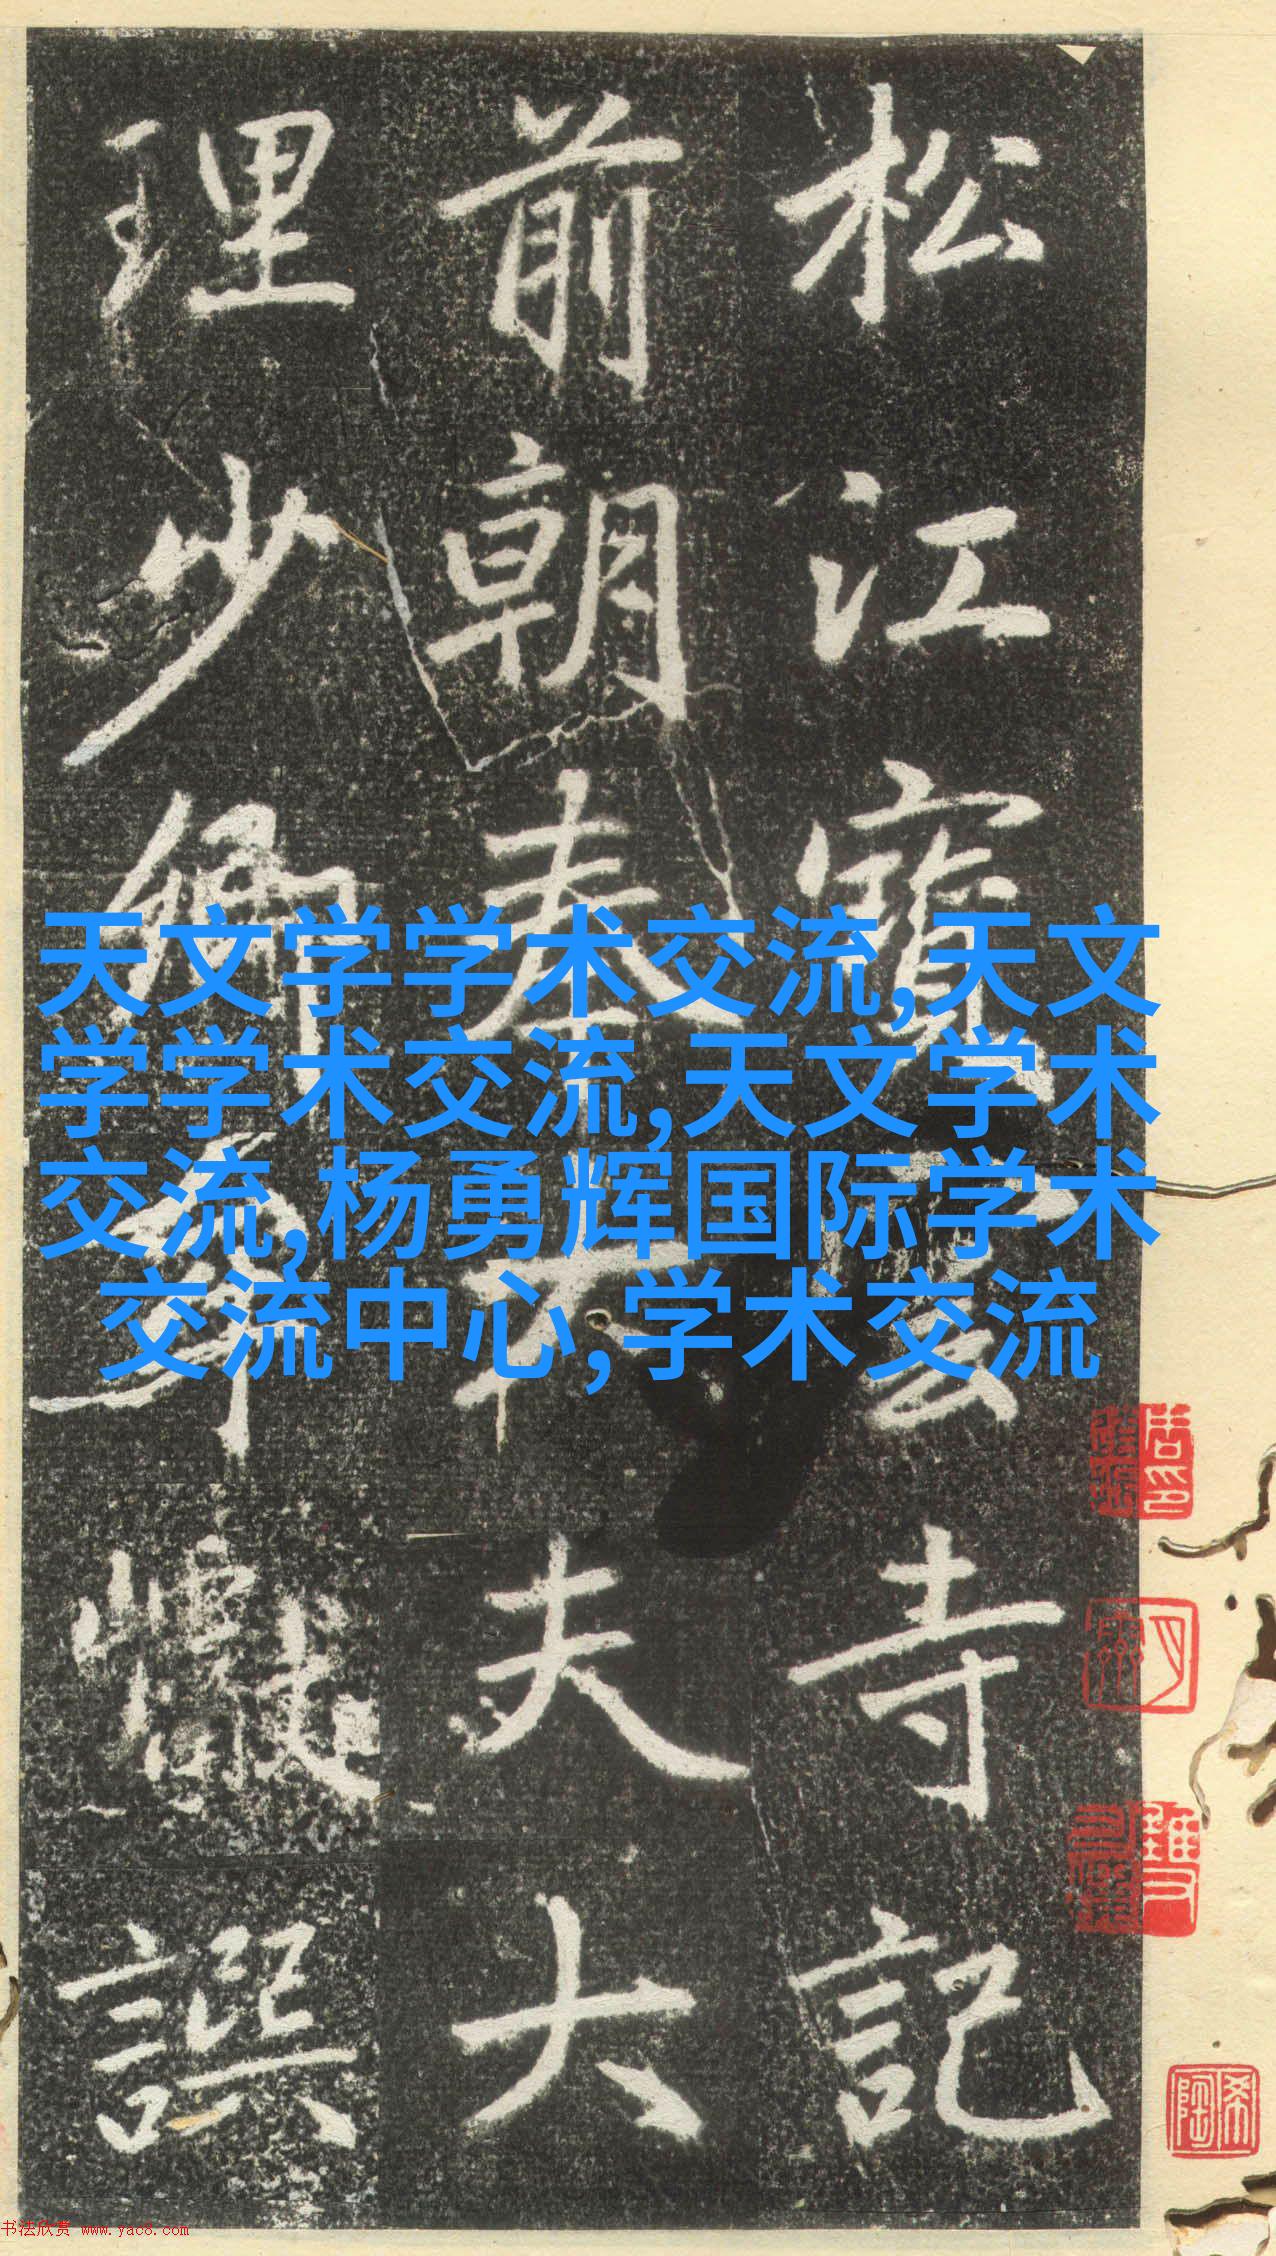 松江寶雲寺記
前朝奉大夫大
理少卿牟巘譔
天文学学术交流,天文
学学术交流,天文学术
交流,杨勇辉国际学术
交流中心,学术交流
书法欣赏 www.yac8.com